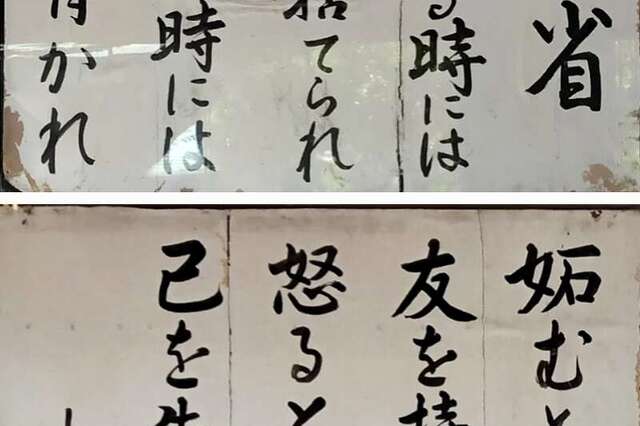 省
る時には
捨てられ
時には
かれ
妬むと
友を
怒ると
己を